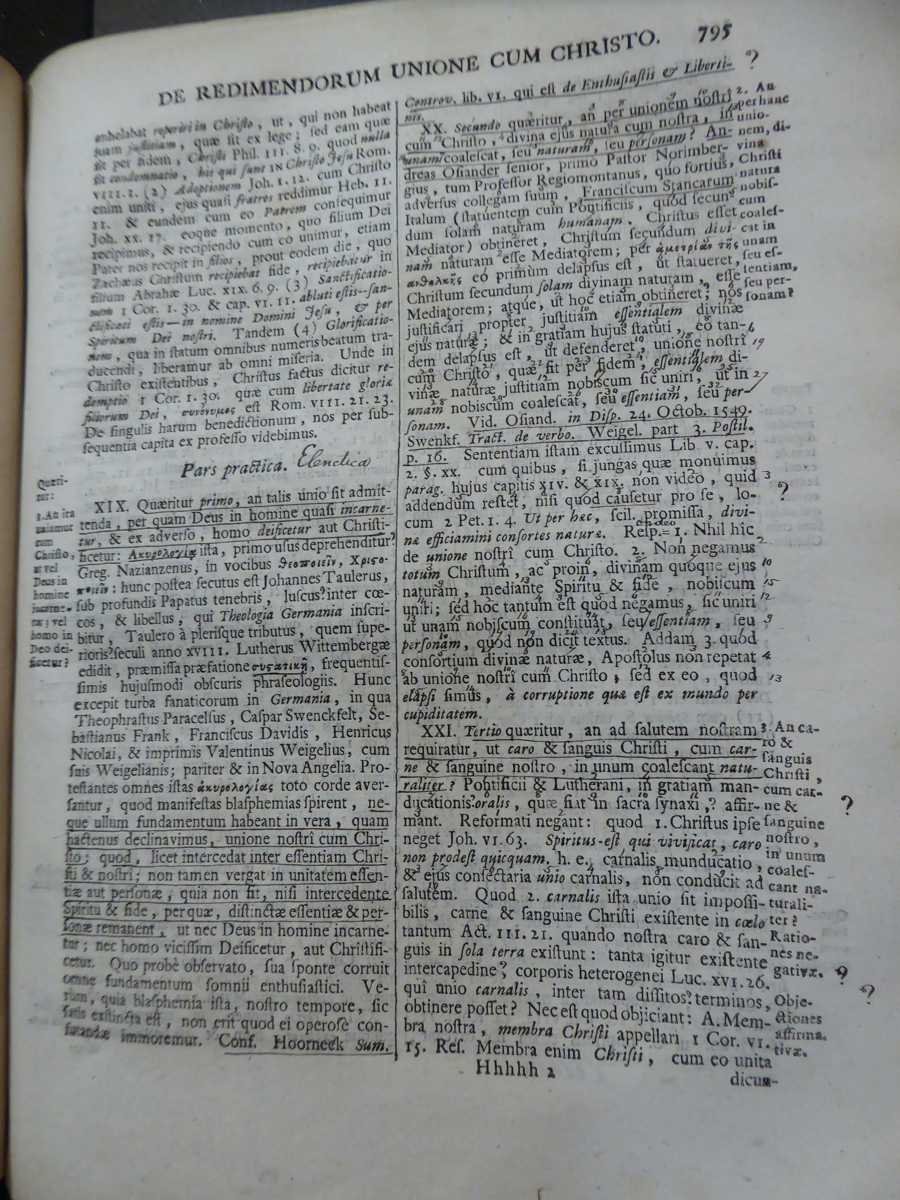 DE REDIMENDORUM UNIONE CUM CHRISTO. 795
anhelabat reperiri in Christo, ut, qui non habeat
suam justitiam, quæ sit ex lege; sed eam quæ
sit per fidem, Christi Phil. III. 8. 9. quod nulla
sit condemnatio, his qui sunt IN Christo Jesu Rom.
VIII. 1. (2) Adoptionem Joh. 1. 12. cum Christo
enim uniti, ejus quasi fratres reddimur Heb. II.
11. & eundem cum eo Patrem consequimur
Joh. XX. 17. eoque momento, quo filium Dei
recipimus, & recipiendo cum eo unimur, etiam
Pater nos recipit in filios, prout eodem die, quo
Zachæus Christum recipiebat fide, recipiebatur in
filium Abrahæ Luc. XIX. 6. 9. (3) Sanctificatio-
nem 1 Cor. 1. 30. & cap. VI. 11. abluti estis—san-
ctificati estis—in nomine Domini Jesu, & per
Spiritum Dei nostri. Tandem (4) Glorificatio-
nem, qua in statum omnibus numeris beatum tra-
ducendi, liberamur ab omni miseria. Unde in
Christo existentibus, Christus factus dicitur re-
demptio 1 Cor. 1. 30. quæ cum libertate gloriæ
filiorum Dei, συνώνυμος est Rom. VIII. 21. 23.
De singulis harum benedictionum, nos per sub-
sequentia capita ex professo videbimus.
Pars practica. Elenctica
Quæri-
tur:
1. An ita
uniamur
Christo,
ut vel
Deus in
homine
incarne-
tur; vel
homo in
Deo dei-
ficetur?
XIX. Quæritur primo, an talis unio sit admit-
tenda, per quam Deus in homine quasi incarne-
tur, & ex adverso, homo deificetur aut Christi-
ficetur: Ακυρολογίας ista, primo usus deprehenditur
Greg. Nazianzenus, in vocibus θεοποιεῖν, Χριστο-
ποιεῖν: hunc postea secutus est Johannes Taulerus,
sub profundis Papatus tenebris, luscus inter cœ-
cos, & libellus, qui Theologia Germania inscri-
bitur, Taulero à plerisque tributus, quem supe-
rioris seculi anno XVIII. Lutherus Wittembergæ
edidit, præmissa præfatione συστατικῇ, frequentis-
simis hujusmodi obscuris phraseologiis. Hunc
excepit turba fanaticorum in Germania, in qua
Theophrastus Paracelsus, Caspar Swenckfelt, Se-
bastianus Frank, Franciscus Davidis, Henricus
Nicolai, & imprimis Valentinus Weigelius, cum
suis Weigelianis; pariter & in Nova Angelia. Pro-
testantes omnes istas ἀκυρολογίας toto corde aver-
santur, quod manifestas blasphemias spirent, ne-
que ullum fundamentum habeant in vera, quam
hactenus declinavimus, unione nostrî cum Chri-
sto; quod, licet intercedat inter essentiam Chri-
sti & nostri; non tamen vergat in unitatem essen-
tiæ aut personæ, quia non fit, nisi intercedente
Spiritu & fide, per quæ, distinctæ essentiæ & per-
sonæ remanent, ut nec Deus in homine incarne-
tur; nec homo vicissim Deificetur, aut Christifi-
cetur. Quo probè observato, sua sponte corruit
omne fundamentum somnii enthusiastici. Ve-
rum, quia blasphemia ista, nostro tempore, sic
satis exstincta est, non erit quod ei operose con-
futandæ immoremur. Conf. Hoorneek Sum.
Controv. lib. VI. qui est de Enthusiastis & Liberti-
nis.
?
XX. Secundo quæritur, an per unionem nostrî
cum Christo, divina ejus natura cum nostra, in
unam coalescat, seu naturam, seu personam? An-
dreas Osiander senior, primo Pastor Norimber-
gius, tum Professor Regiomontanus, quo fortius,
adversus collegam suum, Franciscum Stancarum
Italum (statuentem cum Pontificiis, quod secun-
dum solam naturam humanam, Christus esset
Mediator) obtineret, Christum secundum divi-
nam naturam esse Mediatorem; per ἀμετρίαν τῆς
ἀνθολκῆς eo primùm delapsus est, ut statueret,
Christum secundum solam divinam naturam, esse
Mediatorem; atque, ut hoc etiam obtineret; nos
justificari propter justitiam essentialem divinæ
ejus naturæ; & in gratiam hujus statuti, eo tan-
dem delapsus est, ut defenderet, unione nostrî
cum Christo, quæ fit per fidem, essentialem di-
vinæ naturæ justitiam nobiscum sic uniri, ut in
unam nobiscum coalescat, seu essentiam, seu per-
sonam. Vid. Osiand. in Disp. 24. Octob. 1549.
Swenkf. Tract. de verbo. Weigel. part 3. Postil.
p. 16. Sententiam istam excussimus Lib. V. cap.
2. §. XX. cum quibus, si jungas quæ monuimus
parag. hujus capitis XIV. & XIX. non video, quid
addendum restet, nisi quod causetur pro se, lo-
cum 2 Pet. 1. 4. Ut per hæc, scil. promissa, divi-
næ efficiamini consortes naturæ. Resp. 1. Nhil hîc
de unione nostrî cum Christo. 2. Non negamus
totum Christum, ac proin, divinam quoque ejus
naturam, mediante Spiritu & fide, nobiscum
uniri; sed hoc tantum est quod negamus, sic uniri
ut unam nobiscum constituat, seu essentiam, seu
personam, quod non dicit textus. Addam 3. quod
consortium divinæ naturæ, Apostolus non repetat
ab unione nostrî cum Christo, sed ex eo, quod
elapsi simus, à corruptione quæ est ex mundo per
cupiditatem.
2. An
per hanc
unio-
nem, di-
vina
Christi
natura
nobis-
cum
coales-
cat in
unam
seu es-
sentiam,
seu per-
sonam?
19
27
3
?
10
15
12
9
4
13
XXI. Tertio quæritur, an ad salutem nostram
requiratur, ut caro & sanguis Christi, cum car-
ne & sanguine nostro, in unum coalescant natu-
raliter? Pontificii & Lutherani, in gratiam man-
ducationis oralis, quæ fiat in sacra synaxi, affir-
mant. Reformati negant: quod 1. Christus ipse
neget Joh. VI. 63. Spiritus est qui vivificat, caro
non prodest quicquam, h. e. carnalis munducatio,
& ejus consectaria unio carnalis, non conducit ad
salutem. Quod 2. carnalis ista unio sit impossi-
bilis, carne & sanguine Christi existente in cœlo
tantum Act. III. 21. quando nostra caro & san-
guis in sola terra existunt: tanta igitur existente
intercapedine corporis heterogenei Luc. XVI. 26.
qui unio carnalis, inter tam dissitos terminos,
obtinere posset? Nec est quod objiciant: A. Mem-
bra nostra, membra Christi appellari 1 Cor. VI.
15. Res. Membra enim Christi, cum eo unita
3. An ca-
ro &
sanguis
Christi,
cum car-
ne &
sanguine
nostro,
in unum
coales-
cant na-
turali-
ter?
Ratio-
nes ne-
gativæ.
Obje-
ctiones
affirma-
tivæ.
?
?
?
Hhhhh 2
dicun-